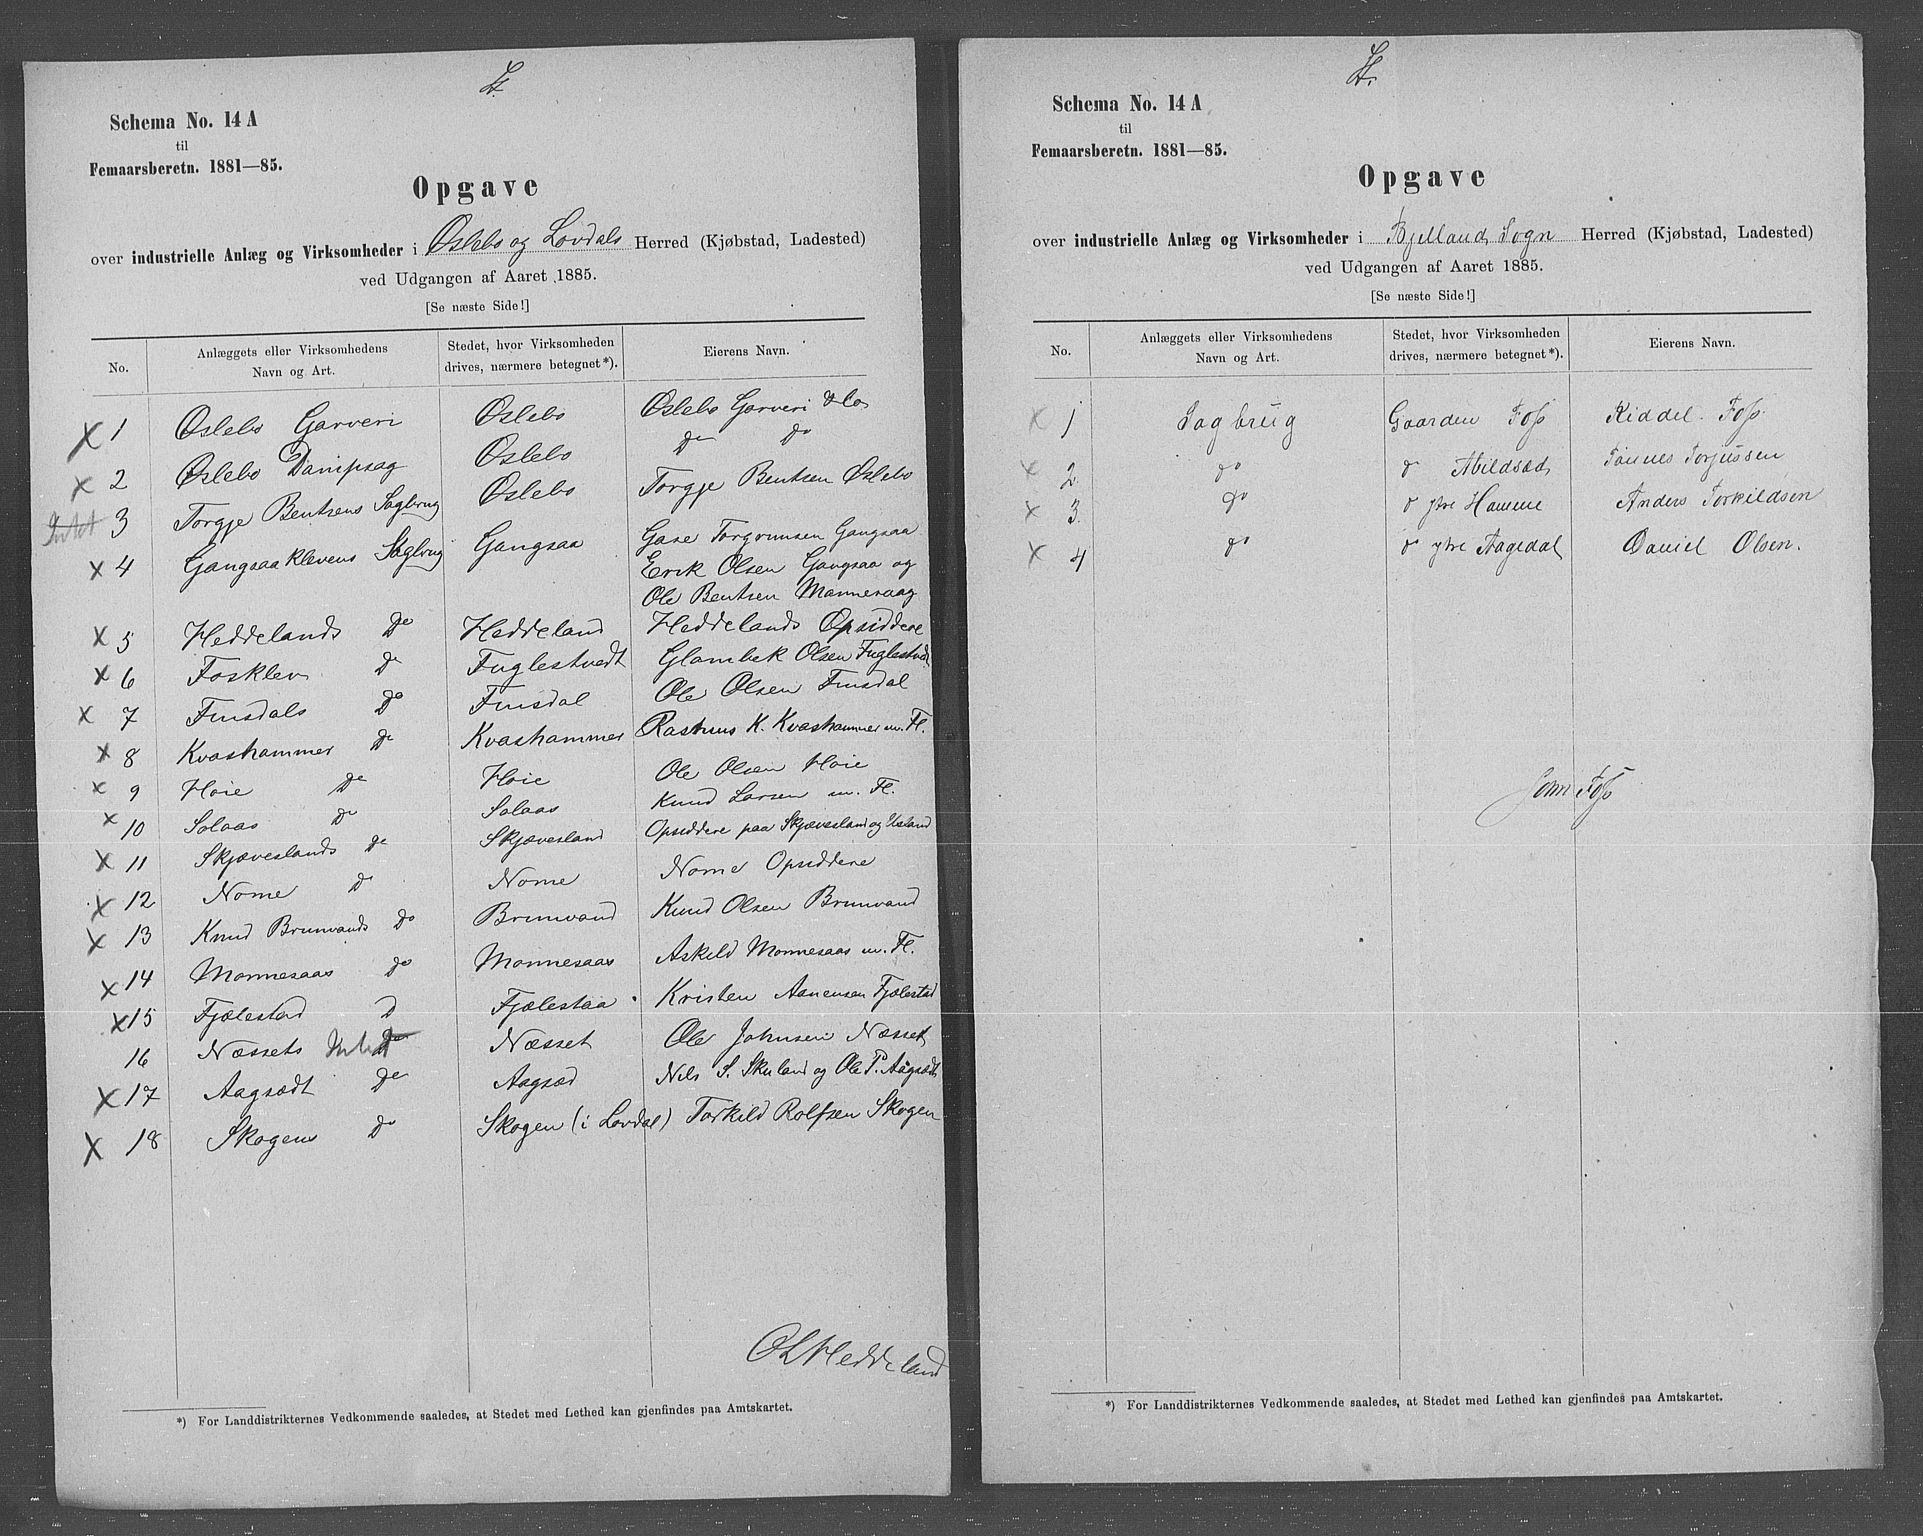 Schema No. 14 A
til
Femaarsberetn. 1881—85.
Opgave
over industrielle Anlæg og Virksomheder i Øslebo og Lovdals Herred (Kjøbstad, Ladested)
ved Udgangen af Aaret 1885.
[Se næste Side!]
No. Anlæggets eller Virksomhedens Navn og Art. Stedet, hvor Virksomheden drives, nærmere betegnet*). Eierens Navn.
x 1 Øslebo Garveri Øslebo Øslebo Garveri & Co
x 2 Øslebo Dampsag Øslebo Do Do
Intet 3 Torgje Bentsens Sagbrug Øslebo Torgje Bentsen Øslebo
x 4 Gangsaaklevens Sagbrug Gangsaa Gase Torgrimsen Gangsaa
Eerik Olsen Gangsaa og
Ole Bentsen Manneraag
x 5 Heddelands Do Heddeland Heddelands Opsiddere
x 6 Fosklev Do Fuglestvedt Glambek Olsen Fuglestvedt
x 7 Finsdals Do Finsdal Ole Olsen Finsdal
x 8 Kvashammer Do Kvashammer Rasmus K. Kvashammer m. Fl.
x 9 Høie Do Høie Ole Olsen Høie
x 10 Solaas Do Solaas Knud Larsen m. Fl.
x 11 Skjæveslands Do Skjævesland Opsiddere paa Skjævesland og Usland
x 12 Nome D Nome Nome Opsiddere
x 13 Knud Brunvands Do Brunvand Knud Olsen Brunvand
x 14 Monnesaas Do Monnesaas Askild Monnesaas m. Fl.
x 15 Fjælestad D Fjælestaa Kristen Aanensen Fjælestad
16 Næssets Intet Do Næsset Ole Johnsen Næsset
x 17 Aagsædt Do Aagsæd Nils S. Skuland og Ole P. Aagsædt
x 18 Skogens Do Skogen (i Lovdal) Torkild Rolfsen Skogen
OLHeddeland
*) For Landdistrikternes Vedkommende saaledes, at Stedet med Lethed kan gjenfindes paa Amtskartet.
Schema No. 14 A
til
Femaarsberetn. 1881—85.
Opgave
over industrielle Anlæg og Virksomheder i Bjelland Sogn Herred (Kjøbstad, Ladested)
ved Udgangen af Aaret 1885.
[Se næste Side!]
No. Anlæggets eller Virksomhedens Navn og Art. Stedet, hvor Virksomheden drives, nærmere betegnet*). Eierens Navn.
x 1 Sagbrug Gaarden Foss Riddel Foss
x 2 do do Abildsæd Tønnes Torjussen
x 3. do do ytre Hamme Anders Torkildsen
x 4 do do ytre Aagedal Daniel Olsen.
John Foss
*) For Landdistrikternes Vedkommende saaledes, at Stedet med Lethed kan gjenfindes paa Amtskartet.